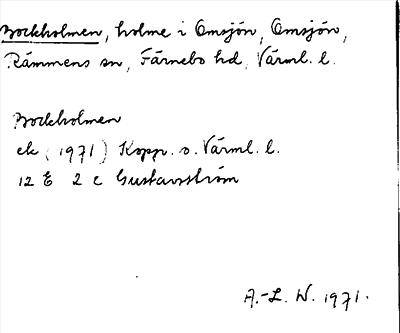 Bockholmen, holme i Omsjön, Omsjön,
Rämmens sn, Färnebo hd, Värml. l.
Bockholmen
ek (1971) Kopp. o. Värml. l.
12 E 2 c Gustavsström
A.-L. W. 1971.